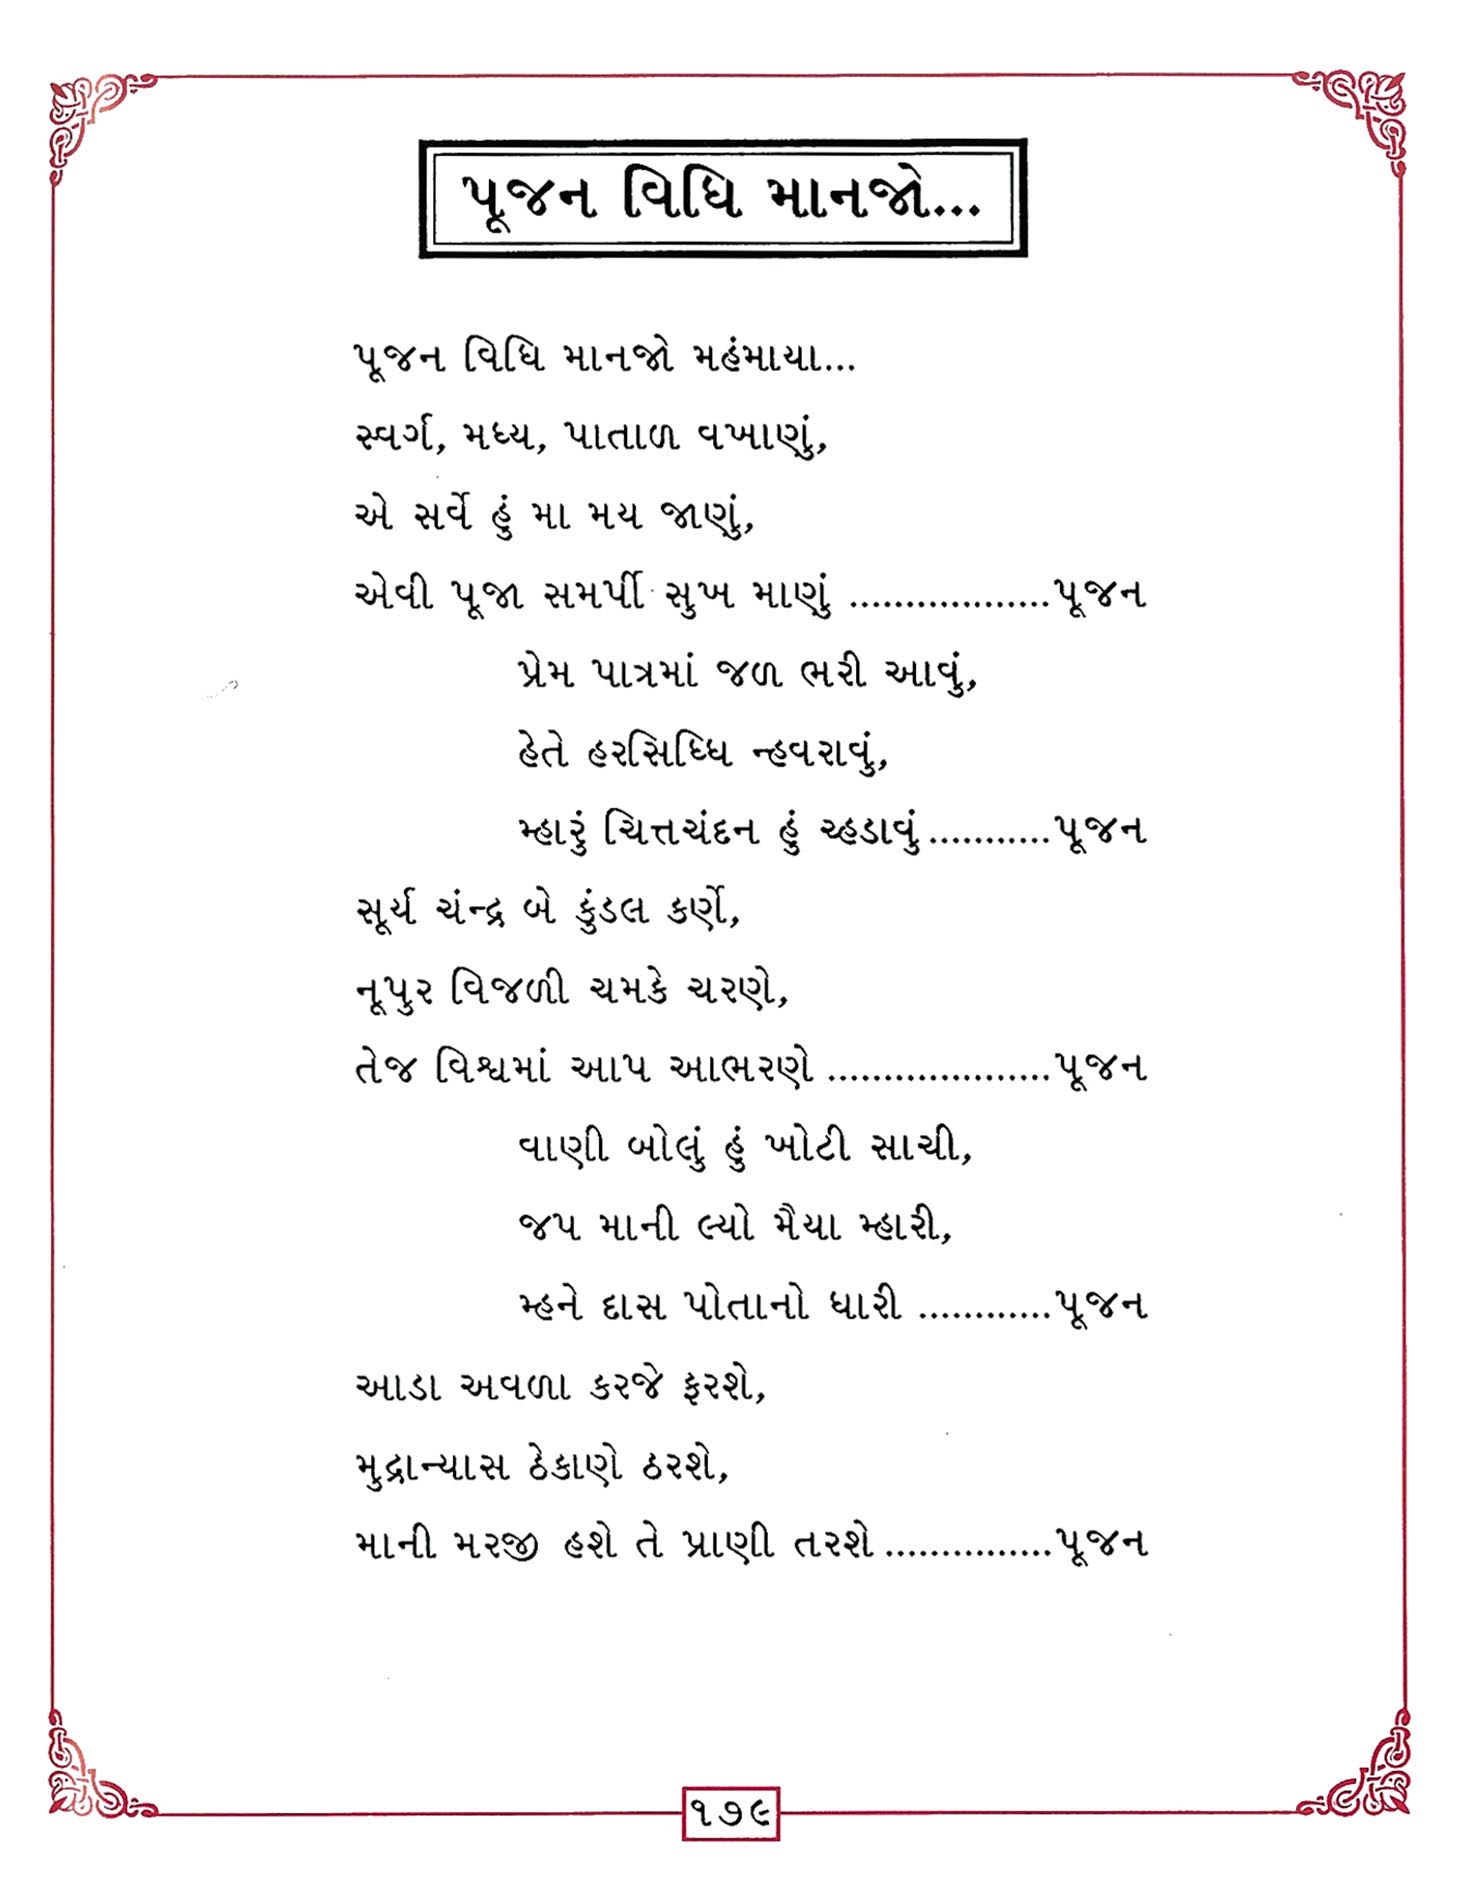 પૂજન વિધિ માનજો...
પૂજન વિધિ માનજો મહંમાયા...
સ્વર્ગ, મધ્ય, પાતાળ વખાણું,
એ સર્વે હું મા મય જાણું,
એવી પૂજા સમર્પી સુખ માણું ..................પૂજન
પ્રેમ પાત્રમાં જળ ભરી આવું,
હેતે હરસિધ્ધિ ન્હવરાવું,
મ્હારું ચિત્તચંદન હું ચ્હડાવું...........પૂજન
સૂર્ય ચંન્દ્ર બે કુંડલ કર્ણે,
નૂપુર વિજળી ચમકે ચરણે,
તેજ વિશ્વમાં આપ આભરણે ....................પૂજન
વાણી બોલું હું ખોટી સાચી,
જપ માની લ્યો મૈયા મ્હારી,
મ્હને દાસ પોતાનો ધારી ............પૂજન
આડા અવળા કરજે ફરશે,
મુદ્રાન્યાસ ઠેકાણે ઠરશે,
માની મરજી હશે તે પ્રાણી તરશે...............પૂજન
૧૭૯